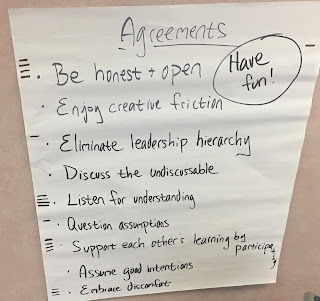 Agreements
Have fun!
· Be honest + open
· Enjoy creative friction
· Eliminate leadership hierarchy
· Discuss the undiscussable
· Listen for understanding
· Question assumptions
· Support each other's learning by participa
· Assume good intentions
· Embrace discomfort